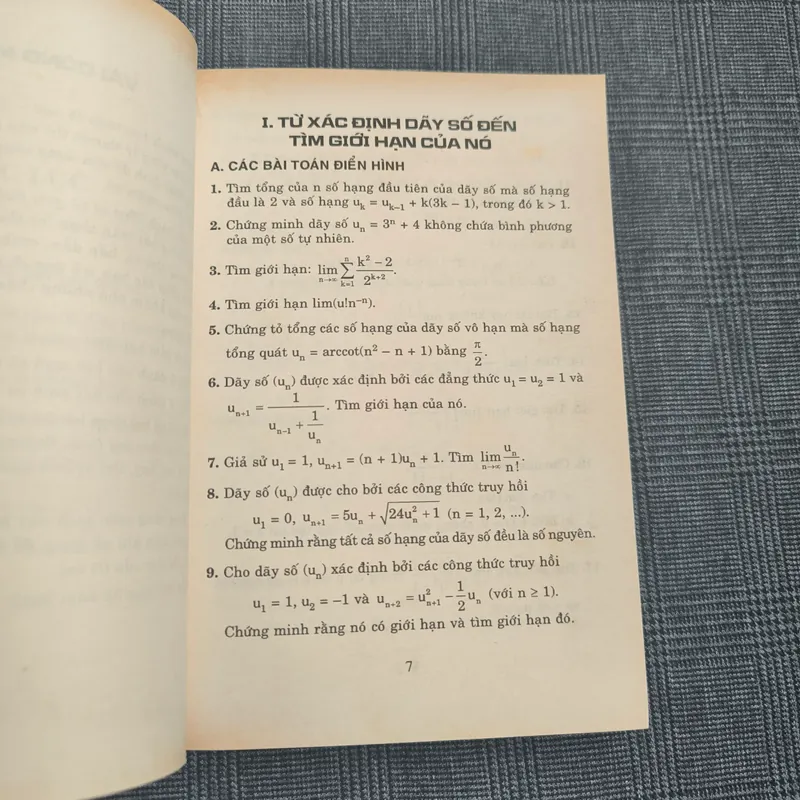 I. TỪ XÁC ĐỊNH DÃY SỐ ĐẾN
TÌM GIỚI HẠN CỦA NÓ
A. CÁC BÀI TOÁN ĐIỂN HÌNH
1. Tìm tổng của n số hạng đầu tiên của dãy số mà số hạng
đầu là 2 và số hạng uₖ = uₖ₋₁ + k(3k – 1), trong đó k > 1.
2. Chứng minh dãy số uₙ = 3ⁿ + 4 không chứa bình phương
của một số tự nhiên.
3. Tìm giới hạn: lim_{n→∞} ∑_{k=1}^{n} (k² – 2)/2^{k+2}.
4. Tìm giới hạn lim(u!n⁻ⁿ).
5. Chứng tỏ tổng các số hạng của dãy số vô hạn mà số hạng
tổng quát uₙ = arccot(n² – n + 1) bằng π/2.
6. Dãy số (uₙ) được xác định bởi các đẳng thức u₁ = u₂ = 1 và
uₙ₊₁ = 1/(uₙ₋₁ + 1/uₙ). Tìm giới hạn của nó.
7. Giả sử u₁ = 1, uₙ₊₁ = (n + 1)uₙ + 1. Tìm lim_{n→∞} uₙ/n!.
8. Dãy số (uₙ) được cho bởi các công thức truy hồi
u₁ = 0, uₙ₊₁ = 5uₙ + √(24uₙ² + 1) (n = 1, 2, ...).
Chứng minh rằng tất cả số hạng của dãy số đều là số nguyên.
9. Cho dãy số (uₙ) xác định bởi các công thức truy hồi
u₁ = 1, u₂ = –1 và uₙ₊₂ = u²ₙ₊₁ – 1/2 uₙ (với n ≥ 1).
Chứng minh rằng nó có giới hạn và tìm giới hạn đó.
7